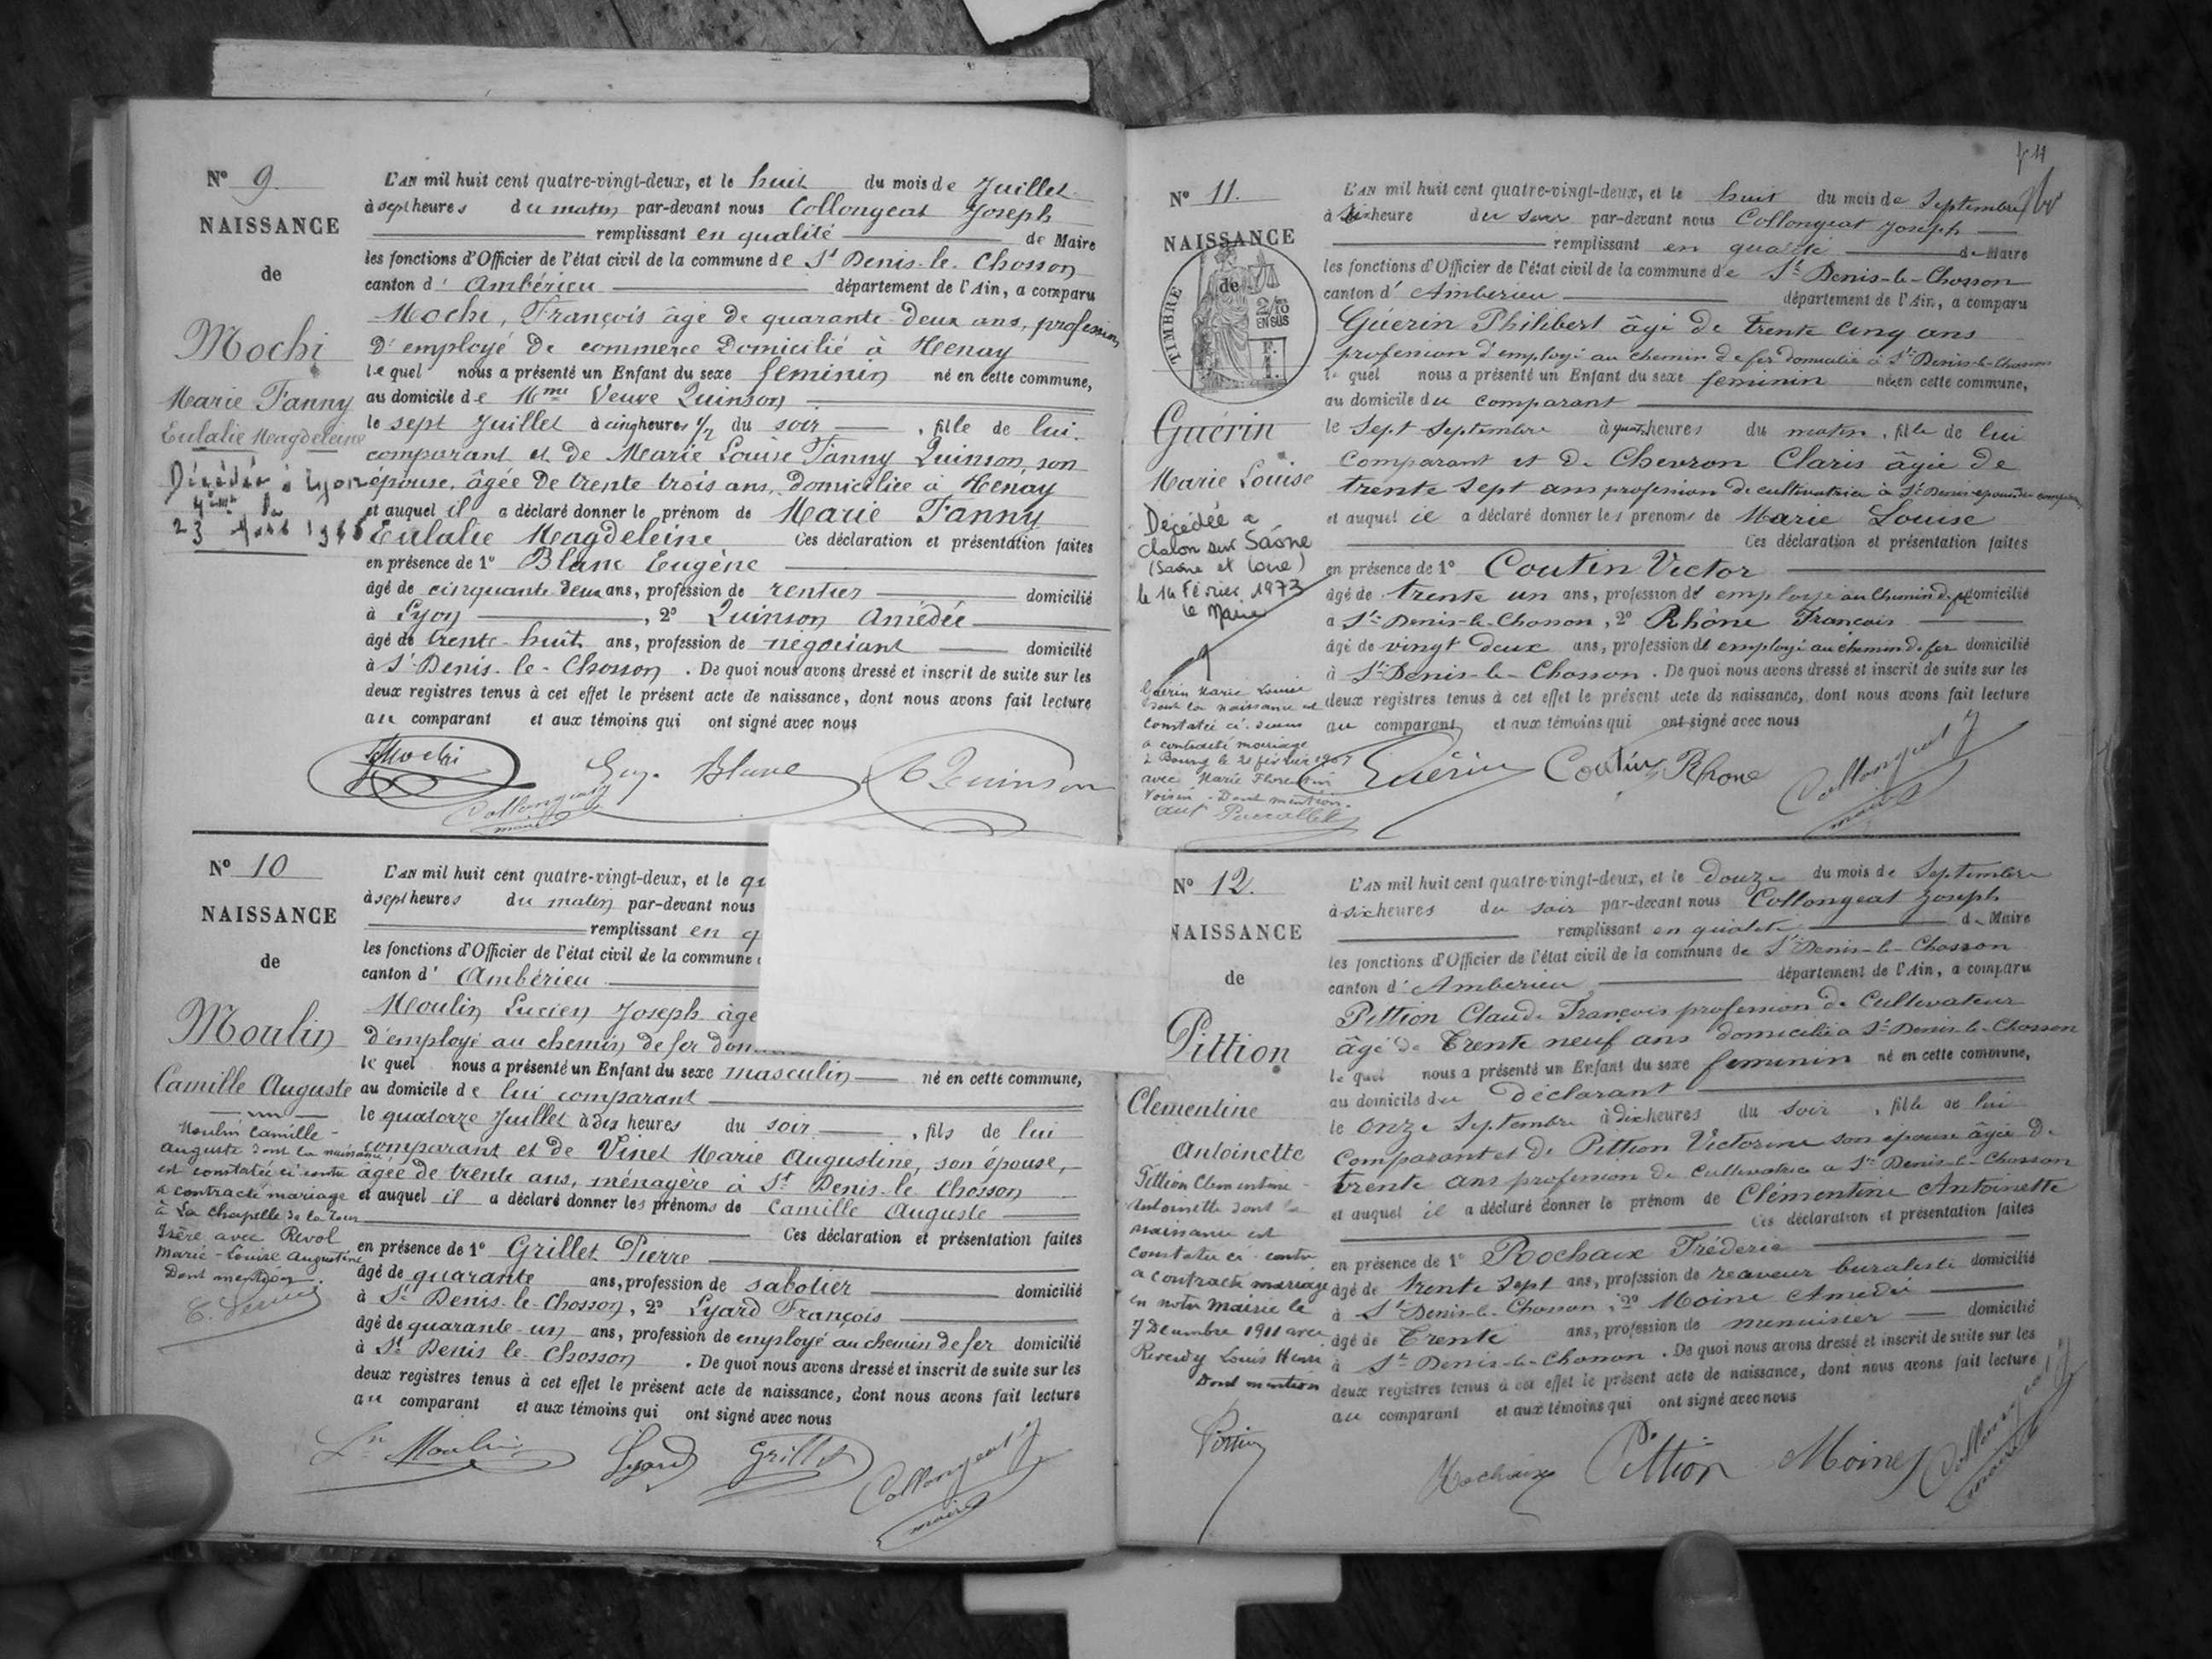 N° 9.
NAISSANCE
de
Mochi
Marie Fanny
Eulalie Magdeleine
Décédée à Lyon
4ème le
23 Août
L'AN mil huit cent quatre-vingt-deux, et le huit du mois de Juillet
à sept heures du matin par-devant nous Collongeat Joseph
remplissant en qualité de Maire
les fonctions d'Officier de l'état civil de la commune de St Denis-le-Chosson
canton d' Ambérieu département de l'Ain, a comparu
Mochi, François âgé de quarante-deux ans, profession
D'employé de commerce Domicilié à Tenay
lequel nous a présenté un Enfant du sexe féminin né en cette commune,
au domicile de Mme Veuve Quinson
le sept Juillet à cinq heures 1/2 du soir, fille de lui
comparant et de Marie Louise Fanny Quinson, son
épouse, âgée de trente trois ans, domiciliée à Tenay
et auquel il a déclaré donner le prénom de Marie Fanny
Eulalie Magdeleine Ces déclaration et présentation faites
en présence de 1° Blanc Eugène
âgé de cinquante deux ans, profession de rentier domicilié
à Lyon, 2° Quinson Amédée
âgé de trente-huit ans, profession de négociant domicilié
à St Denis-le-Chosson. De quoi nous avons dressé et inscrit de suite sur les
deux registres tenus à cet effet le présent acte de naissance, dont nous avons fait lecture
au comparant et aux témoins qui ont signé avec nous
Mochi Eug. Blanc A Quinson
Collongeat
maire
N° 10
NAISSANCE
de
Moulin
Camille Auguste
Moulin Camille-
Auguste dont la naissance
est constatée ci-contre
a contracté mariage
à La Chapelle de la Tour
Isère avec Revol
Marie-Louise Augustine
Dont mention.
L'AN mil huit cent quatre-vingt-deux, et le
à sept heures du matin par-devant nous
remplissant en
les fonctions d'Officier de l'état civil de la commune
canton d' Ambérieu
Moulin Lucien Joseph âgé
d'employé au chemin de fer
lequel nous a présenté un Enfant du sexe masculin né en cette commune,
au domicile de lui comparant
le quatorze Juillet à dix heures du soir, fils de lui
comparant et de Vinet Marie Augustine, son épouse,
âgée de trente ans, ménagère à St Denis-le Chosson
et auquel il a déclaré donner les prénoms de Camille Auguste
Ces déclaration et présentation faites
en présence de 1° Grillet Pierre
âgé de quarante ans, profession de sabotier domicilié
à St Denis-le-Chosson, 2° Lyard François
âgé de quarante-un ans, profession de employé au chemin de fer domicilié
à St Denis le Chosson. De quoi nous avons dressé et inscrit de suite sur les
deux registres tenus à cet effet le présent acte de naissance, dont nous avons fait lecture
au comparant et aux témoins qui ont signé avec nous
Moulin Lyard Grillet Collongeat J
maire
N° 11.
NAISSANCE
de
TIMBRE
2/10
EN SUS
Guérin
Marie Louise
Décédée à
Chalon sur Saône
(Saône et Loire)
le 14 Février 1973
le Maire
Guérin Marie Louise
dont la naissance est
constatée ci-dessus
a contracté mariage
à Bourg le 21 février
avec Marie Florentin
Voisin. Dont mention.
L'AN mil huit cent quatre-vingt-deux, et le huit du mois de Septembre
à six heure du soir par-devant nous Collongeat Joseph
remplissant en qualité de Maire
les fonctions d'Officier de l'état civil de la commune de St Denis-le-Chosson
canton d' Ambérieu département de l'Ain, a comparu
Guérin Philibert âgé de trente cinq ans
profession d'employé au chemin de fer domicilié à St Denis-le-Chosson
lequel nous a présenté un Enfant du sexe féminin né en cette commune,
au domicile du comparant
le Sept Septembre à quatre heures du matin, fille de lui
comparant et de Chevron Claris âgée de
trente Sept ans profession de cultivatrice à St Denis épouse du comparant
et auquel il a déclaré donner les prénoms de Marie Louise
Ces déclaration et présentation faites
en présence de 1° Coutin Victor
âgé de trente un ans, profession de employé au Chemin de fer domicilié
à St Denis-le-Chosson, 2° Rhône François
âgé de vingt deux ans, profession de employé au chemin de fer domicilié
à St Denis-le-Chosson. De quoi nous avons dressé et inscrit de suite sur les
deux registres tenus à cet effet le présent acte de naissance, dont nous avons fait lecture
au comparant et aux témoins qui ont signé avec nous
Guérin Coutin Rhone Collongeat J
maire
N° 12.
NAISSANCE
de
Pittion
Clementine
Antoinette
Pittion Clementine-
Antoinette dont la
naissance est
constatée ci-contre
a contracté mariage
en notre mairie le
7 Décembre 1911 avec
Louis Henri
Dont mention
L'AN mil huit cent quatre-vingt-deux, et le douze du mois de Septembre
à six heures du soir par-devant nous Collongeat Joseph
remplissant en qualité de Maire
les fonctions d'Officier de l'état civil de la commune de St Denis-le-Chosson
canton d' Ambérieu département de l'Ain, a comparu
Pittion Claude François profession de Cultivateur
âgé de Trente neuf ans domicilié à St Denis-le-Chosson
lequel nous a présenté un Enfant du sexe féminin né en cette commune,
au domicile du déclarant
le onze Septembre à dix heures du soir, fille de lui
comparant et de Pittion Victorine son épouse âgée de
trente ans profession de cultivatrice à St Denis-le-Chosson
et auquel il a déclaré donner le prénom de Clémentine Antoinette
Ces déclaration et présentation faites
en présence de 1° Rochaix Fréderic
âgé de trente sept ans, profession de receveur buraliste domicilié
à St Denis-le-Chosson, 2° Moine Amédée
âgé de Trente ans, profession de menuisier domicilié
à St Denis-le-Chosson. De quoi nous avons dressé et inscrit de suite sur les
deux registres tenus à cet effet le présent acte de naissance, dont nous avons fait lecture
au comparant et aux témoins qui ont signé avec nous
Rochaix Pittion Moine Collongeat J
maire